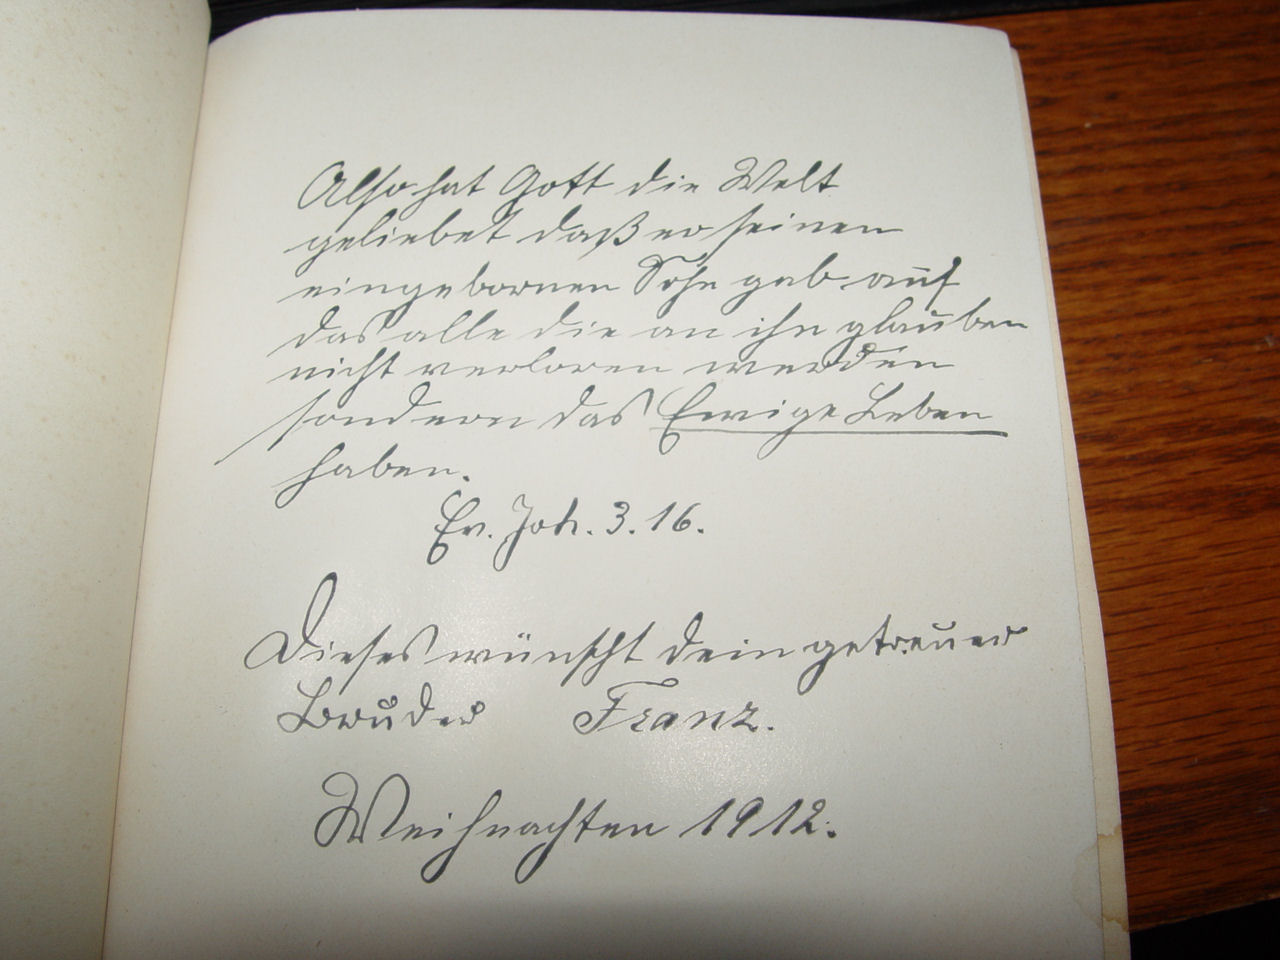 Also hat Gott die Welt
geliebet daß er seinen
eingebornen Sohn gab auf
das alle die an ihn glauben
nicht verloren werden
sondern das Ewige Leben
haben.
Ev. Joh. 3. 16.
Dieses wünscht dein getreuer
Bruder Franz.
Weihnachten 1912.